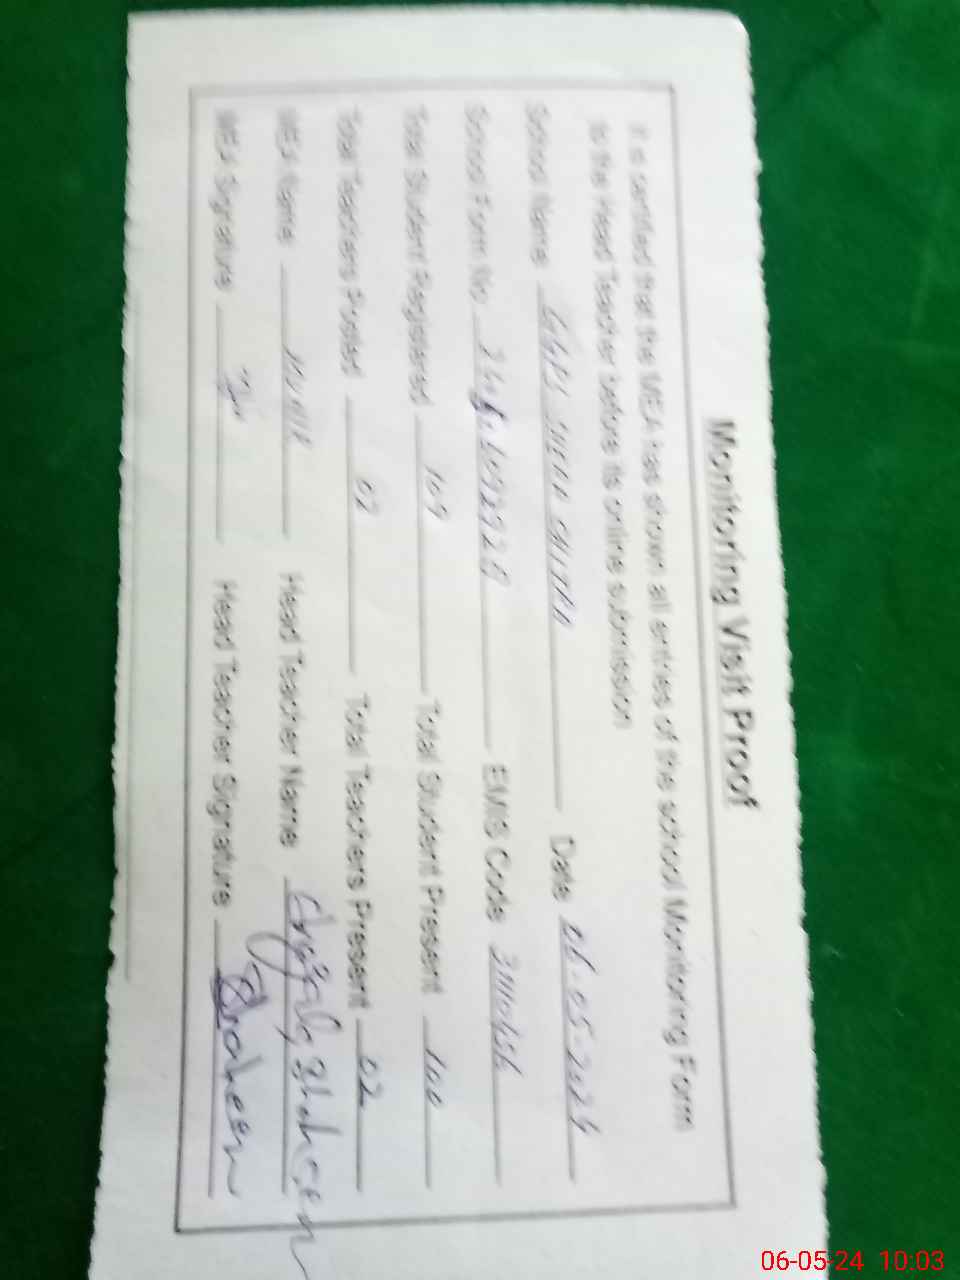 Monitoring Visit Proof
It is certified that the MEA has shown all entries of the school Monitoring Form
to the Head Teacher before its online submission
School Name Date 06-05-2024
School Form No EMIS Code
Total Student Registered 169 Total Student Present 100
Total Teachers Posted 02 Total Teachers Present 02
MEA Name Head Teacher Name Shaheen
MEA Signature Head Teacher Signature Shaheen
06-05-24 10:03